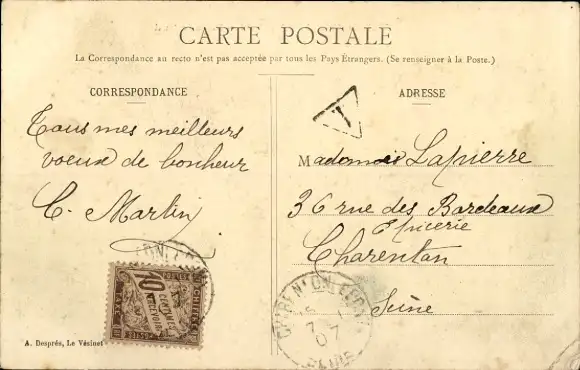 CARTE POSTALE
La Correspondance au recto n'est pas acceptée par tous les Pays Étrangers. (Se renseigner à la Poste.)
CORRESPONDANCE
Tous mes meilleurs
voeux de bonheur
C. Martin
10
CENTIMES
A. Desprès, Le Vésinet
T
ADRESSE
Mademois Lapierre
36 rue des Bordeaux
Epicerie
Charenton
Seine
07